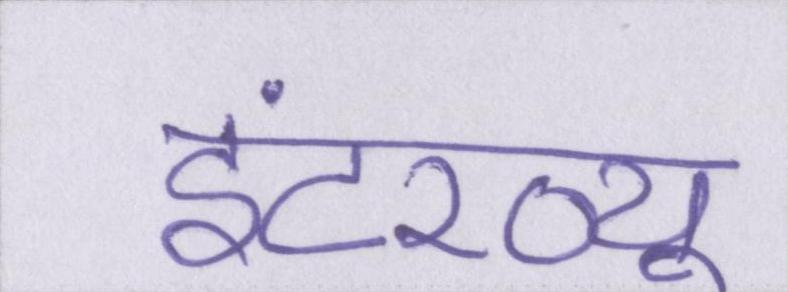 इंटरव्यू